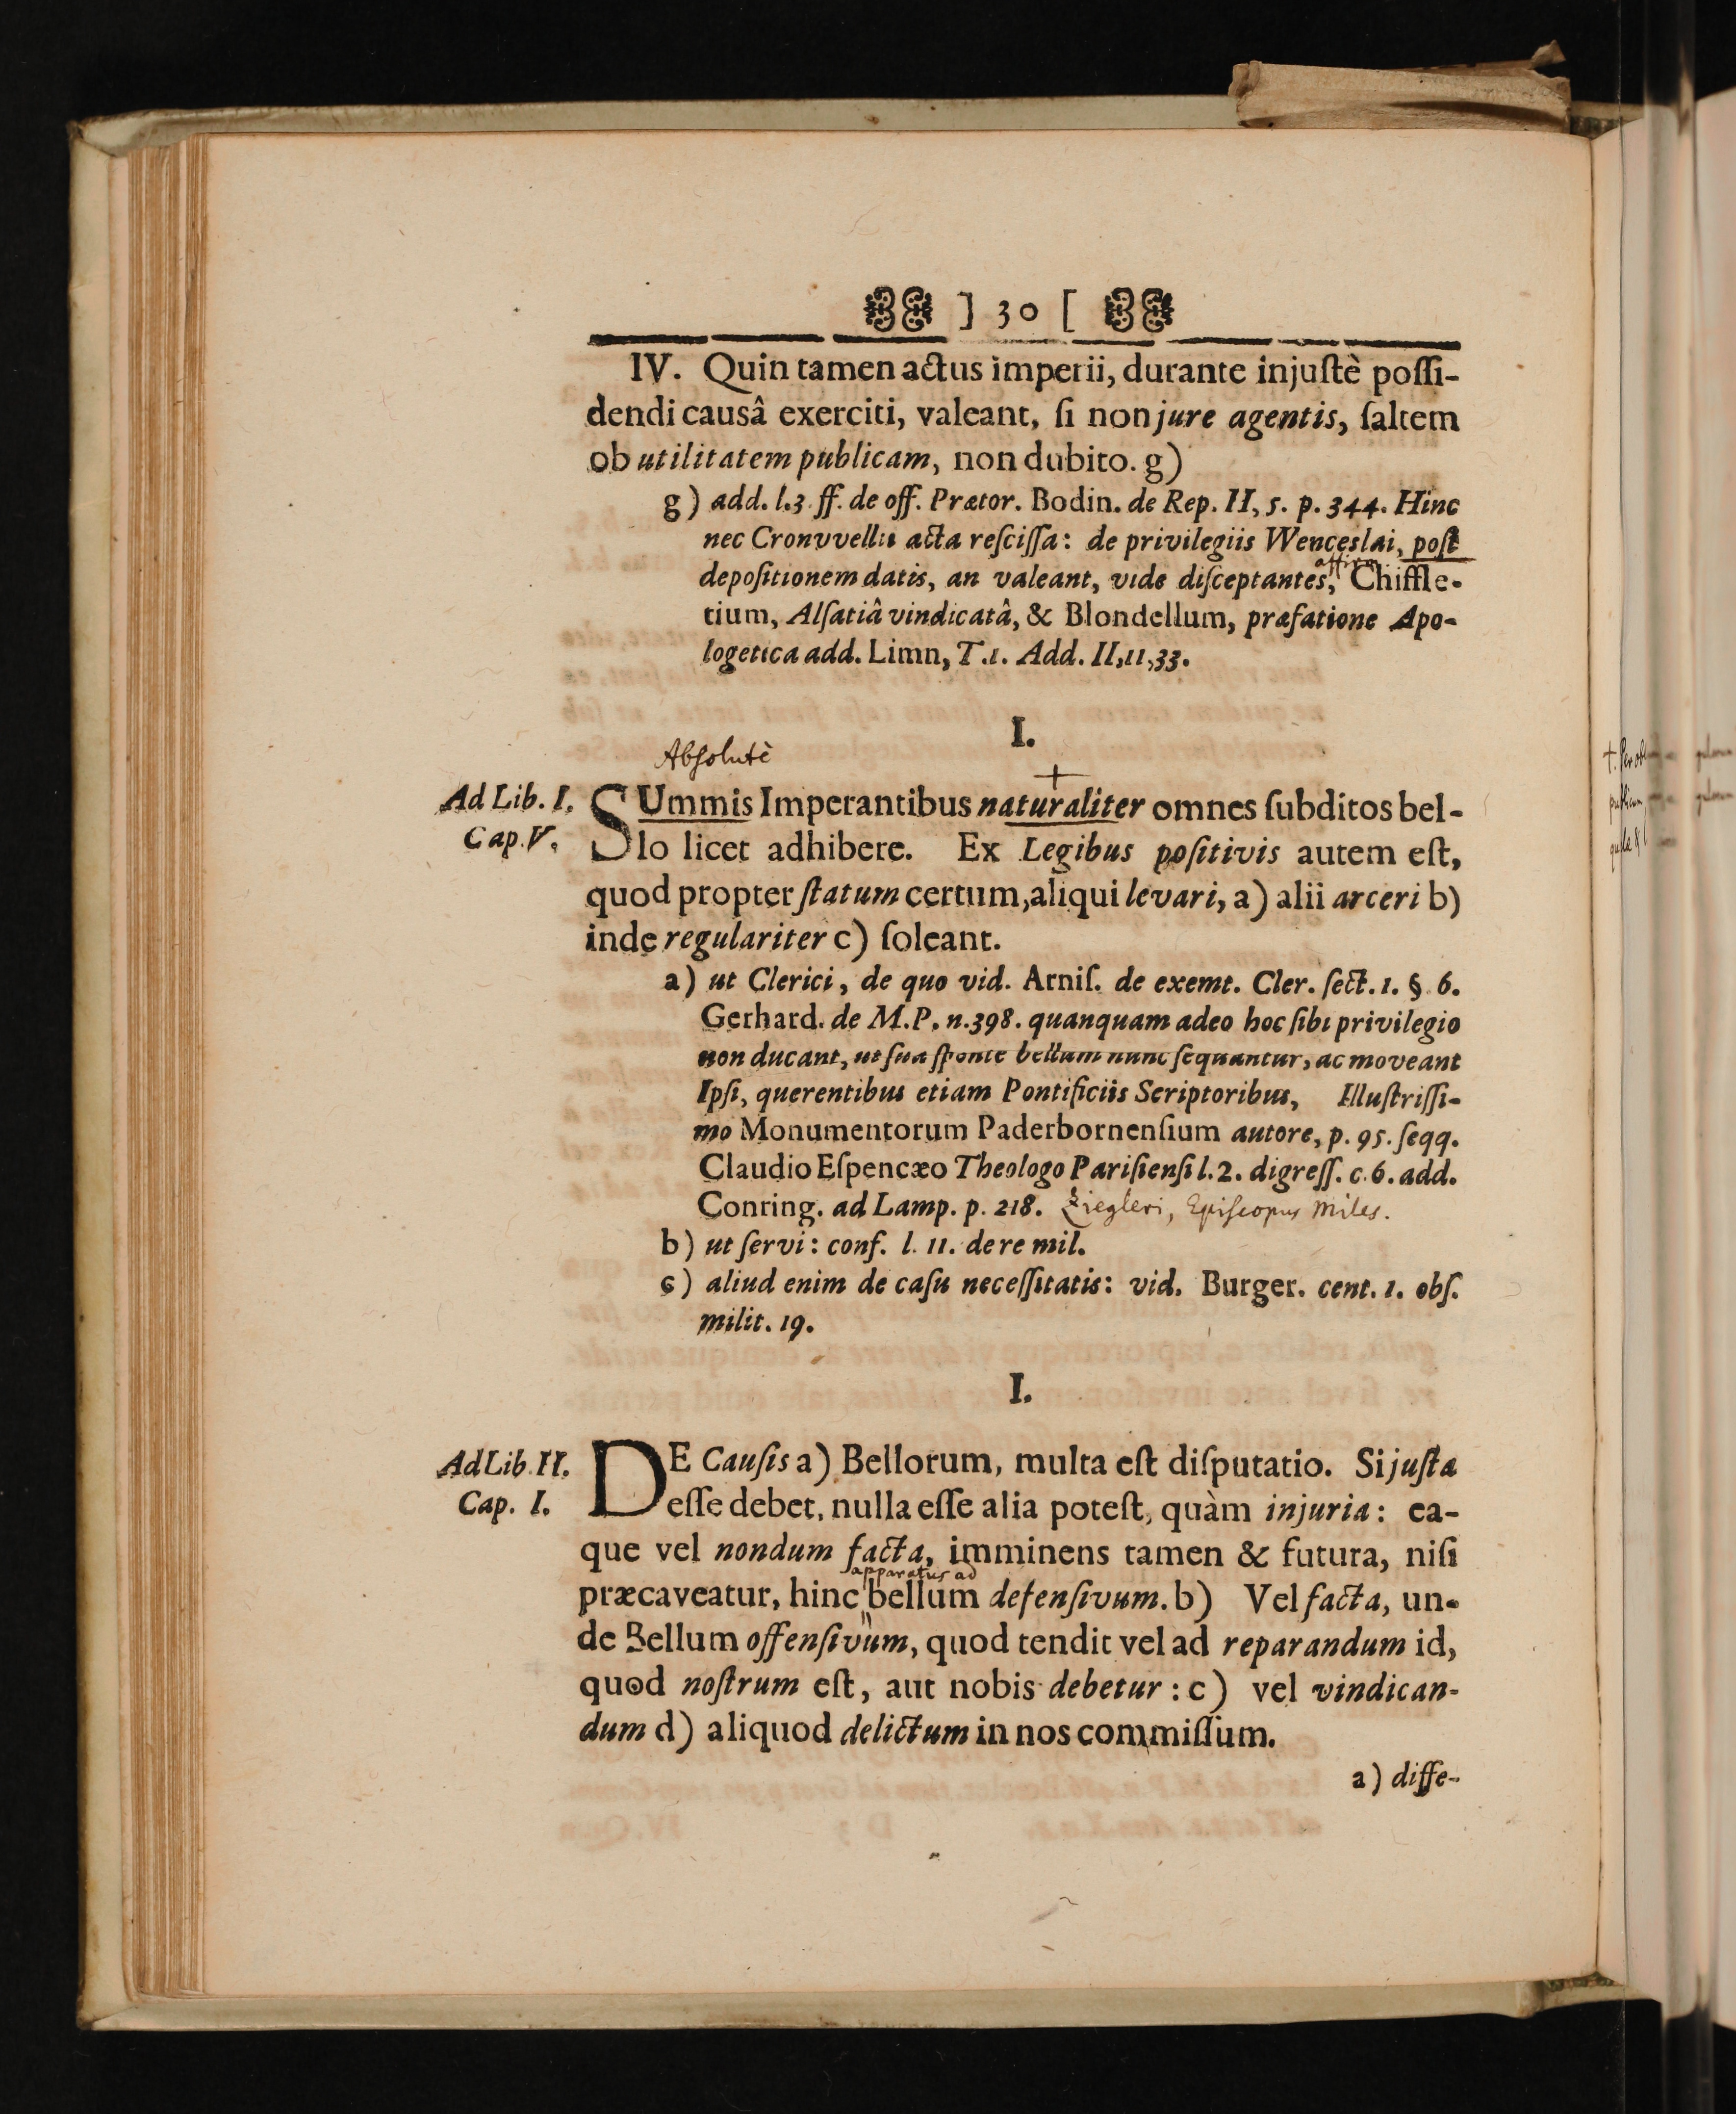 ] 30 [
IV. Quin tamen actus imperii, durante injuſtè poſſi-
dendi causâ exerciti, valeant, ſi non jure agentis, ſaltem
ob utilitatem publicam, non dubito. g)
g) add. l.3 ff. de off. Prætor. Bodin. de Rep. II, 5. p. 344. Hinc
nec Cronvvellii acta reſciſſa: de privilegiis Wenceslai, poſt
depoſitionem datis, an valeant, vide diſceptantes, Chiffle-
tium, Alſatiâ vindicatâ, & Blondellum, præfatione Apo-
logetica add. Limn, T.1. Add. II,11,33.
I.
Absolutè
+
Ad Lib. I.
Cap. V.
SUmmis Imperantibus naturaliter omnes ſubditos bel-
lo licet adhibere. Ex Legibus poſitivis autem eſt,
quod propter ſtatum certum, aliqui levari, a) alii arceri b)
inde regulariter c) ſoleant.
a) ut Clerici, de quo vid. Arniſ. de exemt. Cler. ſect. 1. § 6.
Gerhard. de M.P. n.398. quanquam adeo hoc ſibi privilegio
non ducant, ut ſua ſponte bellum nunc ſequantur, ac moveant
Ipſi, querentibus etiam Pontificiis Scriptoribus, Illuſtriſſi-
mo Monumentorum Paderbornenſium autore, p. 95. ſeqq.
Claudio Eſpencæo Theologo Pariſienſi l.2. digreſſ. c.6. add.
Conring. ad Lamp. p. 218. Ziegleri, Epiſcopus Miles.
b) ut ſervi: conf. l. 11. de re mil.
c) aliud enim de caſu neceſſitatis: vid. Burger. cent. 1. obſ.
milit. 19.
I.
Ad Lib. II.
Cap. I.
DE Cauſis a) Bellorum, multa eſt diſputatio. Si juſta
eſſe debet, nulla eſſe alia poteſt, quàm injuria: ea-
que vel nondum facta, imminens tamen & futura, niſi
apparatus ad
præcaveatur, hinc bellum defenſivum. b) Vel facta, un-
de Bellum offenſivum, quod tendit vel ad reparandum id,
quod noſtrum eſt, aut nobis debetur : c) vel vindican-
dum d) aliquod delictum in nos commiſſum.
a) diffe-